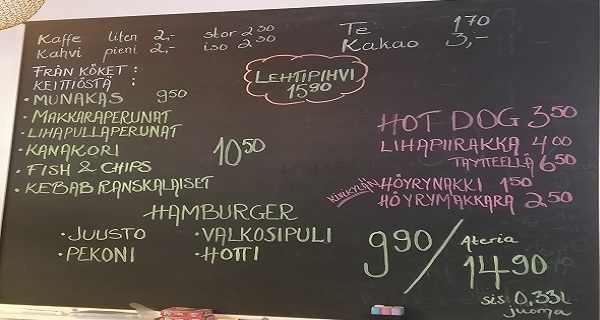 Kaffe liten 2,- stor 2 50
Kahvi pieni 2,- iso 2 50
Te 1 70
Kakao 3,-
FRÅN KÖKET :
KEITTIÖSTÄ :
LEHTIPIHVI
15 90
• MUNAKAS 9 50
• MAKKARAPERUNAT
• LIHAPULLAPERUNAT
• KANAKORI
• FISH & CHIPS
• KEBAB RANSKALAISET
10 50
HOT DOG 3 50
LIHAPIIRAKKA 4 00
TÄYTTEELLÄ 6 50
KYRKYLÄN
HÖYRYNAKKI 1 50
HÖYRYMAKKARA 2 50
HAMBURGER
• JUUSTO • VALKOSIPULI
• PEKONI • HOTTI
9 90 / Ateria
14 90
sis. 0,33L
juoma